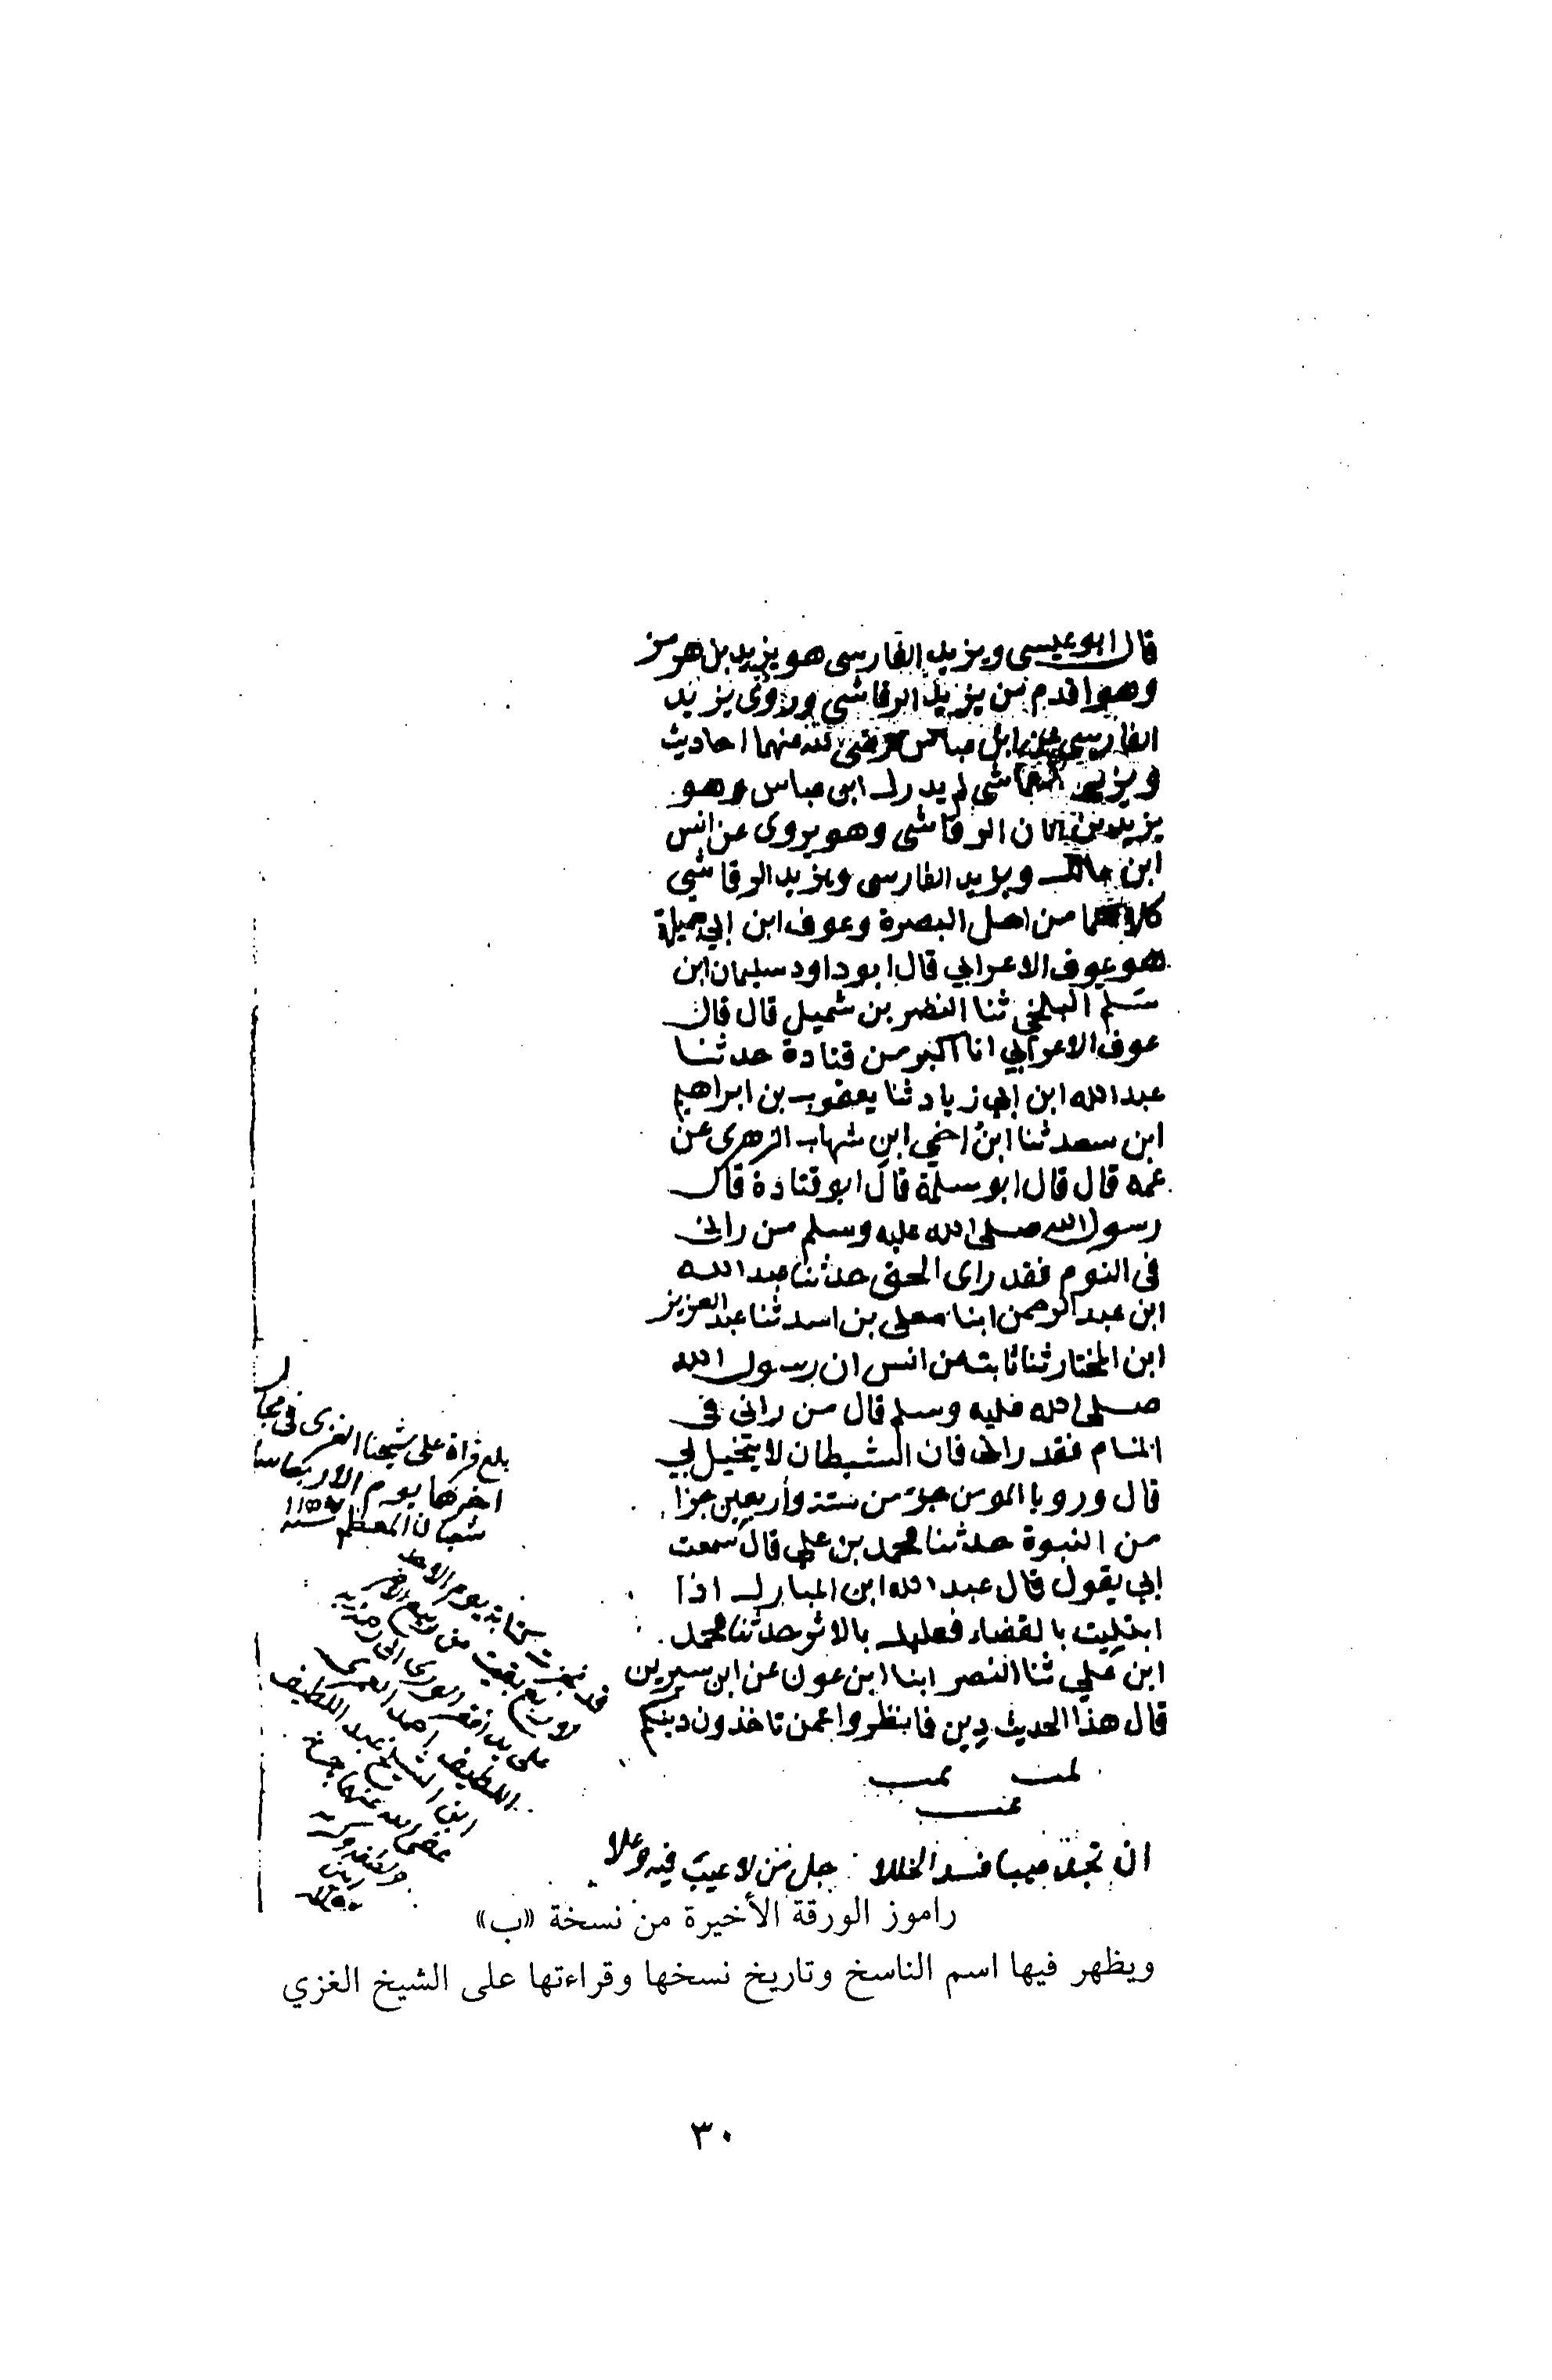 قال ابو عيسى ويزيد الفارسى هو يزيد بن هرمز
وهو اقدم من يزيد الرقاشى وروى يزيد
الفارسى عن ابن عباس رضى الله عنهما احاديث
ويزيد الرقاشى لم يدرك ابن عباس وهو
يزيد بن ابان الرقاشى وهو يروى عن انس
ابن مالك ويزيد الفارسى ويزيد الرقاشى
كلاهما من اهل البصرة وعوف ابن ابي جميلة
هو عوف الاعرابي قال ابو داود سليمان ابن
سلم البلخي ثنا النضر بن شميل قال قال
عوف الاعرابي انا اكبر من قتادة حدثنا
عبد الله ابن ابي زياد ثنا يعقوب بن ابراهيم
ابن سعد ثنا ابن اخي ابن شهاب الزهرى عن
عمه قال قال ابو سلمة قال ابو قتادة قال
رسول الله صلى الله عليه وسلم من رانى
فى النوم فقد راى الحق حدثنا عبد الله
ابن عبد الرحمن ابنا معلى بن اسد ثنا عبد العزيز
ابن المختار ثنا ثابت عن انس ان رسول الله
صلى الله عليه وسلم قال من رانى فى
المنام فقد رانى فان الشيطان لا يتخيل بي
قال ورويا المومن جزء من ستة وأربعين جزا
من النبوة حدثنا محمد بن علي قال سمعت
ابي يقول قال عبد الله ابن المبارك اذا
ابتليت بالقضاء فعليك بالاثر حدثنا محمد
ابن علي ثنا النصر ابنا ابن عون عن ابن سيرين
قال هذا الحديث دين فانظروا عمن تاخذون دينكم
تمت تمت
تمت
ان تجد عيبا فسد الخللا جل من لا عيب فيه وعلا
بلغ قراة على شيخنا الغزى فى
اخرها يوم الاربعا
شعبان المعظم سنة
يوم الاحد
بقيت من ربيع
على يد افقر الورى الى
اللطيف احمد العمرى
ابن الشيخ عبد اللطيف
عفى الله عنهما
راموز الورقة الأخيرة من نسخة «ب»
ويظهر فيها اسم الناسخ وتاريخ نسخها وقراءتها على الشيخ الغزي
٣٠